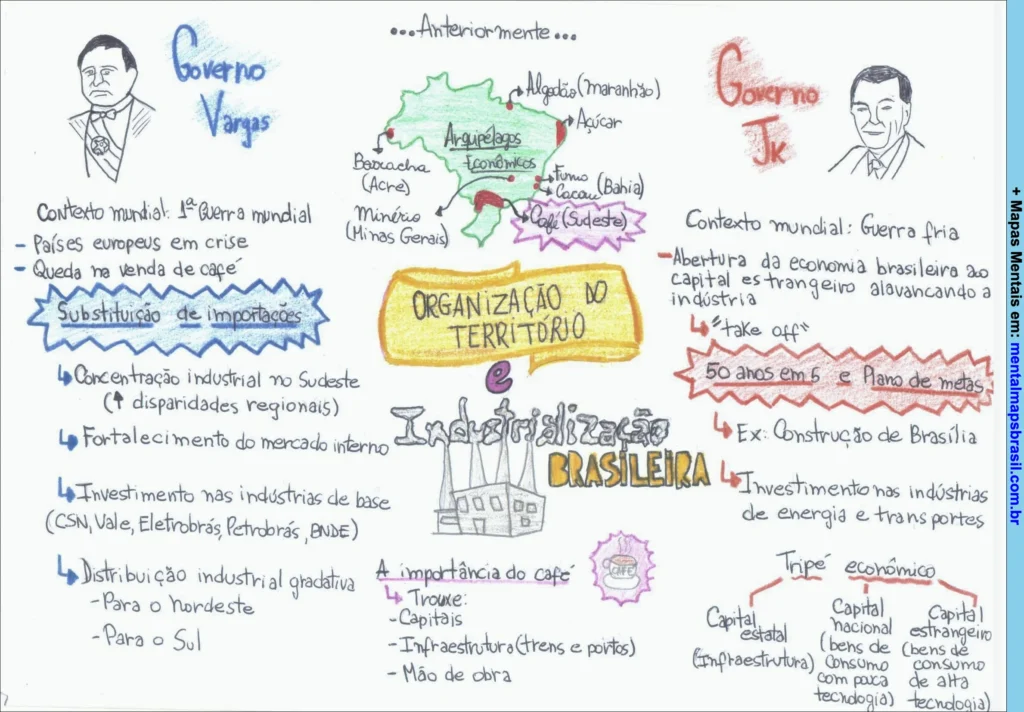 ...Anteriormente...
Algodão (Maranhão)
Açúcar
Arquipélagos
Econômicos
Borracha
(Acre)
Fumo
Cacau (Bahia)
Minério
(Minas Gerais)
Café (Sudeste)
Governo
Vargas
Contexto mundial: 1ª Guerra mundial
- Países europeus em crise
- Queda na venda de café
Substituição de importações
Concentração industrial no Sudeste
(↑ disparidades regionais)
Fortalecimento do mercado interno
Investimento nas indústrias de base
(CSN, Vale, Eletrobrás, Petrobrás, BNDE)
Distribuição industrial gradativa
- Para o Nordeste
- Para o Sul
ORGANIZAÇÃO DO
TERRITÓRIO
e
Industrialização
BRASILEIRA
A importância do café
CAFÉ
Trouxe:
- Capitais
- Infraestrutura (trens e portos)
- Mão de obra
Governo
JK
Contexto mundial: Guerra fria
- Abertura da economia brasileira ao
capital estrangeiro alavancando a
indústria
"take off"
50 anos em 5 e Plano de metas
Ex: Construção de Brasília
Investimento nas indústrias
de energia e transportes
Tripé econômico
Capital
estatal
(Infraestrutura)
Capital
nacional
(bens de
consumo
com pouca
tecnologia)
Capital
estrangeiro
(bens de
consumo
de alta
tecnologia)
+ Mapas Mentais em: mentalmapsbrasil.com.br